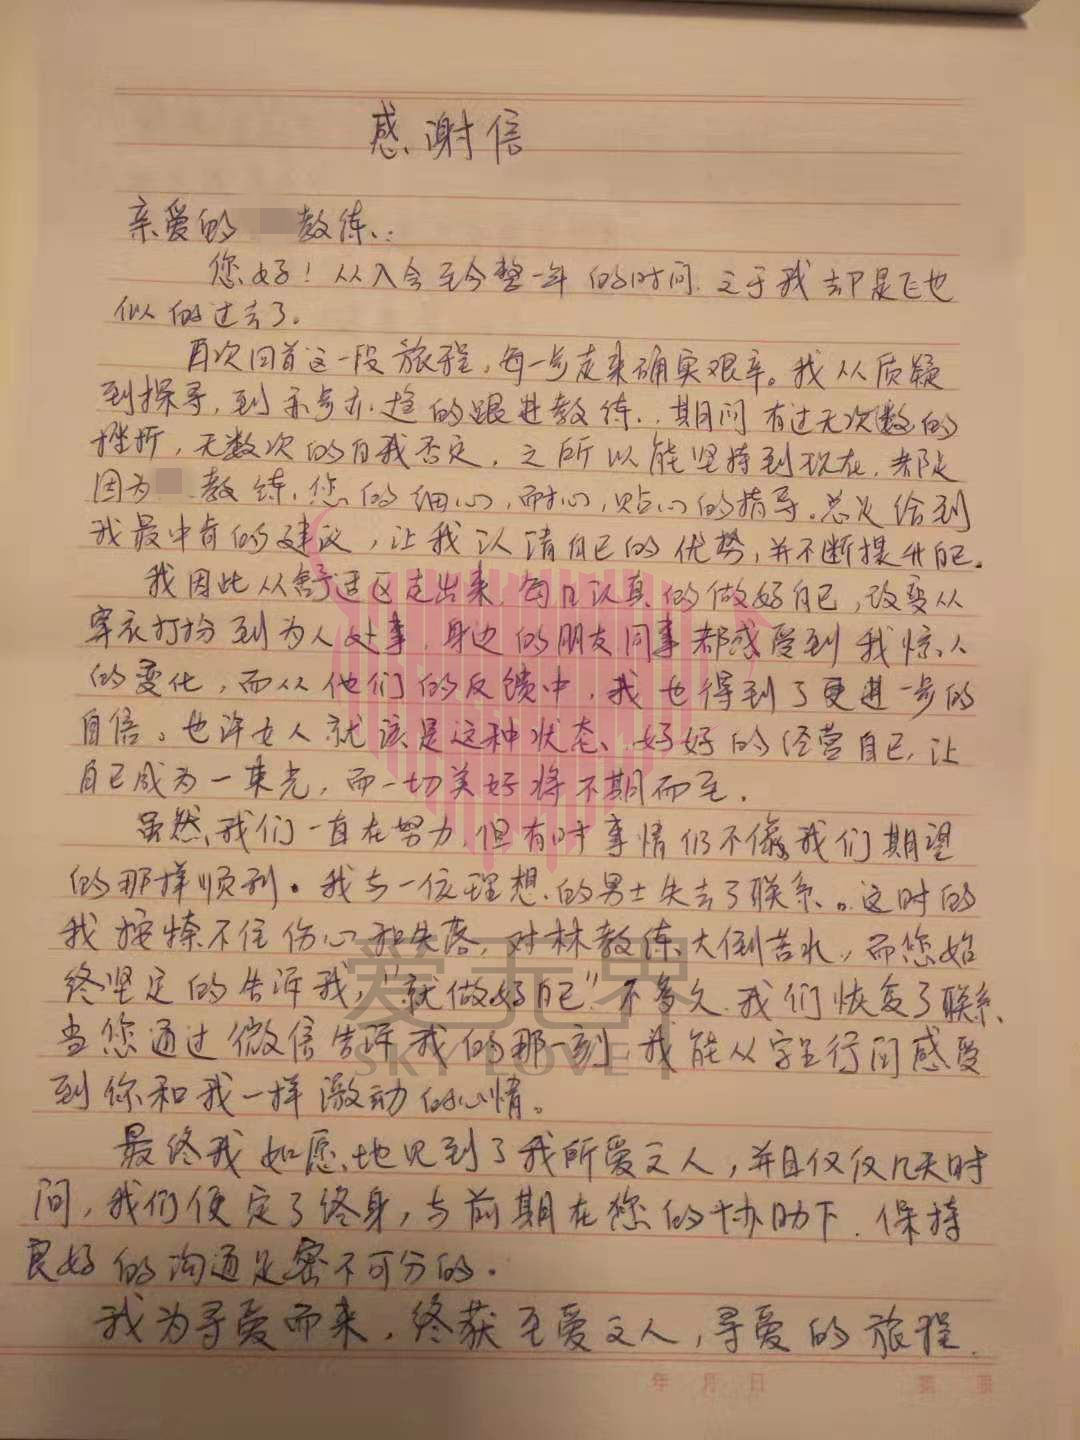 感谢信
亲爱的 教练:
您好！从入会至今整一年的时间.之于我却是飞也
似的过去了.
再次回首这一段旅程，每一步走来确实艰辛。我从质疑
到探寻，到亦步亦趋的跟进教练.期间有过无次数的
挫折，无数次的自我否定，之所以能坚持到现在.都是
因为 教练.您的细心，耐心，贴心的指导.总是给到
我最中肯的建议，让我认清自己的优势，并不断提升自己.
我因此从舒适区走出来.每日认真的做好自己，改变从
穿衣打扮到为人处事.身边的朋友同事都感受到我惊人
的变化，而从他们的反馈中，我也得到了更进一步的
自信。也许女人就该是这种状态、好好的经营自己，让
自己成为一束光，而一切美好将不期而至.
虽然我们一直在努力，但有时事情仍不像我们期望
的那样顺利。我与一位理想的男士失去了联系。这时的
我按捺不住伤心和失落，对林教练大倒苦水，而您始
终坚定的告诉我，"就做好自己"不多久.我们恢复了联系.
当您通过微信告诉我的那一刻，我能从字里行间感受
到你和我一样激动的心情。
最终我如愿地见到了我所爱之人，并且仅仅几天时
间，我们便定了终身，与前期在您的协助下.保持
良好的沟通是密不可分的.
我为寻爱而来，终获至爱之人，寻爱的旅程.
年 月 日 第 页
爱无界
SKY LOVE